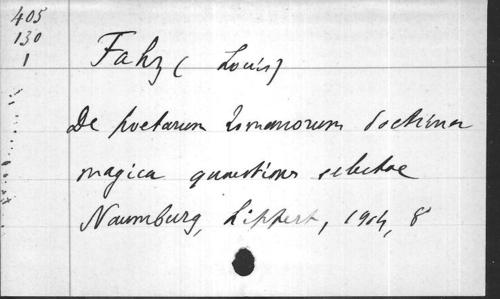 405
130
1
Fahz (Louis)
De poetarum romanorum doctrina
magica quaestiones selectae
Naumburg, Lippert, 1904, 8°